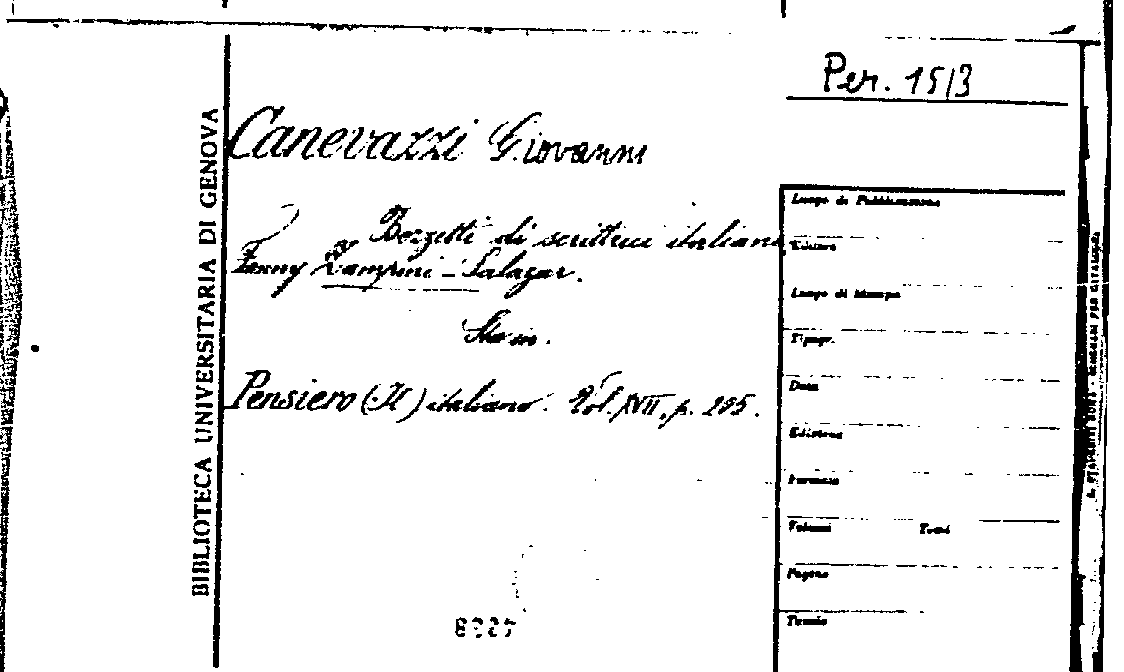 Per. 15/3
BIBLIOTECA UNIVERSITARIA DI GENOVA
Canevazzi Giovanni
Bozzetti di scrittrici italiane
Fanny Zampini-Salazar.
Pensiero (Il) italiano. Vol. XVII, p. 205.
Luogo di Pubblicazione
Editore
Luogo di Stampa
Tipogr.
Data
Edizione
Formato
Volumi Tomi
Pagine